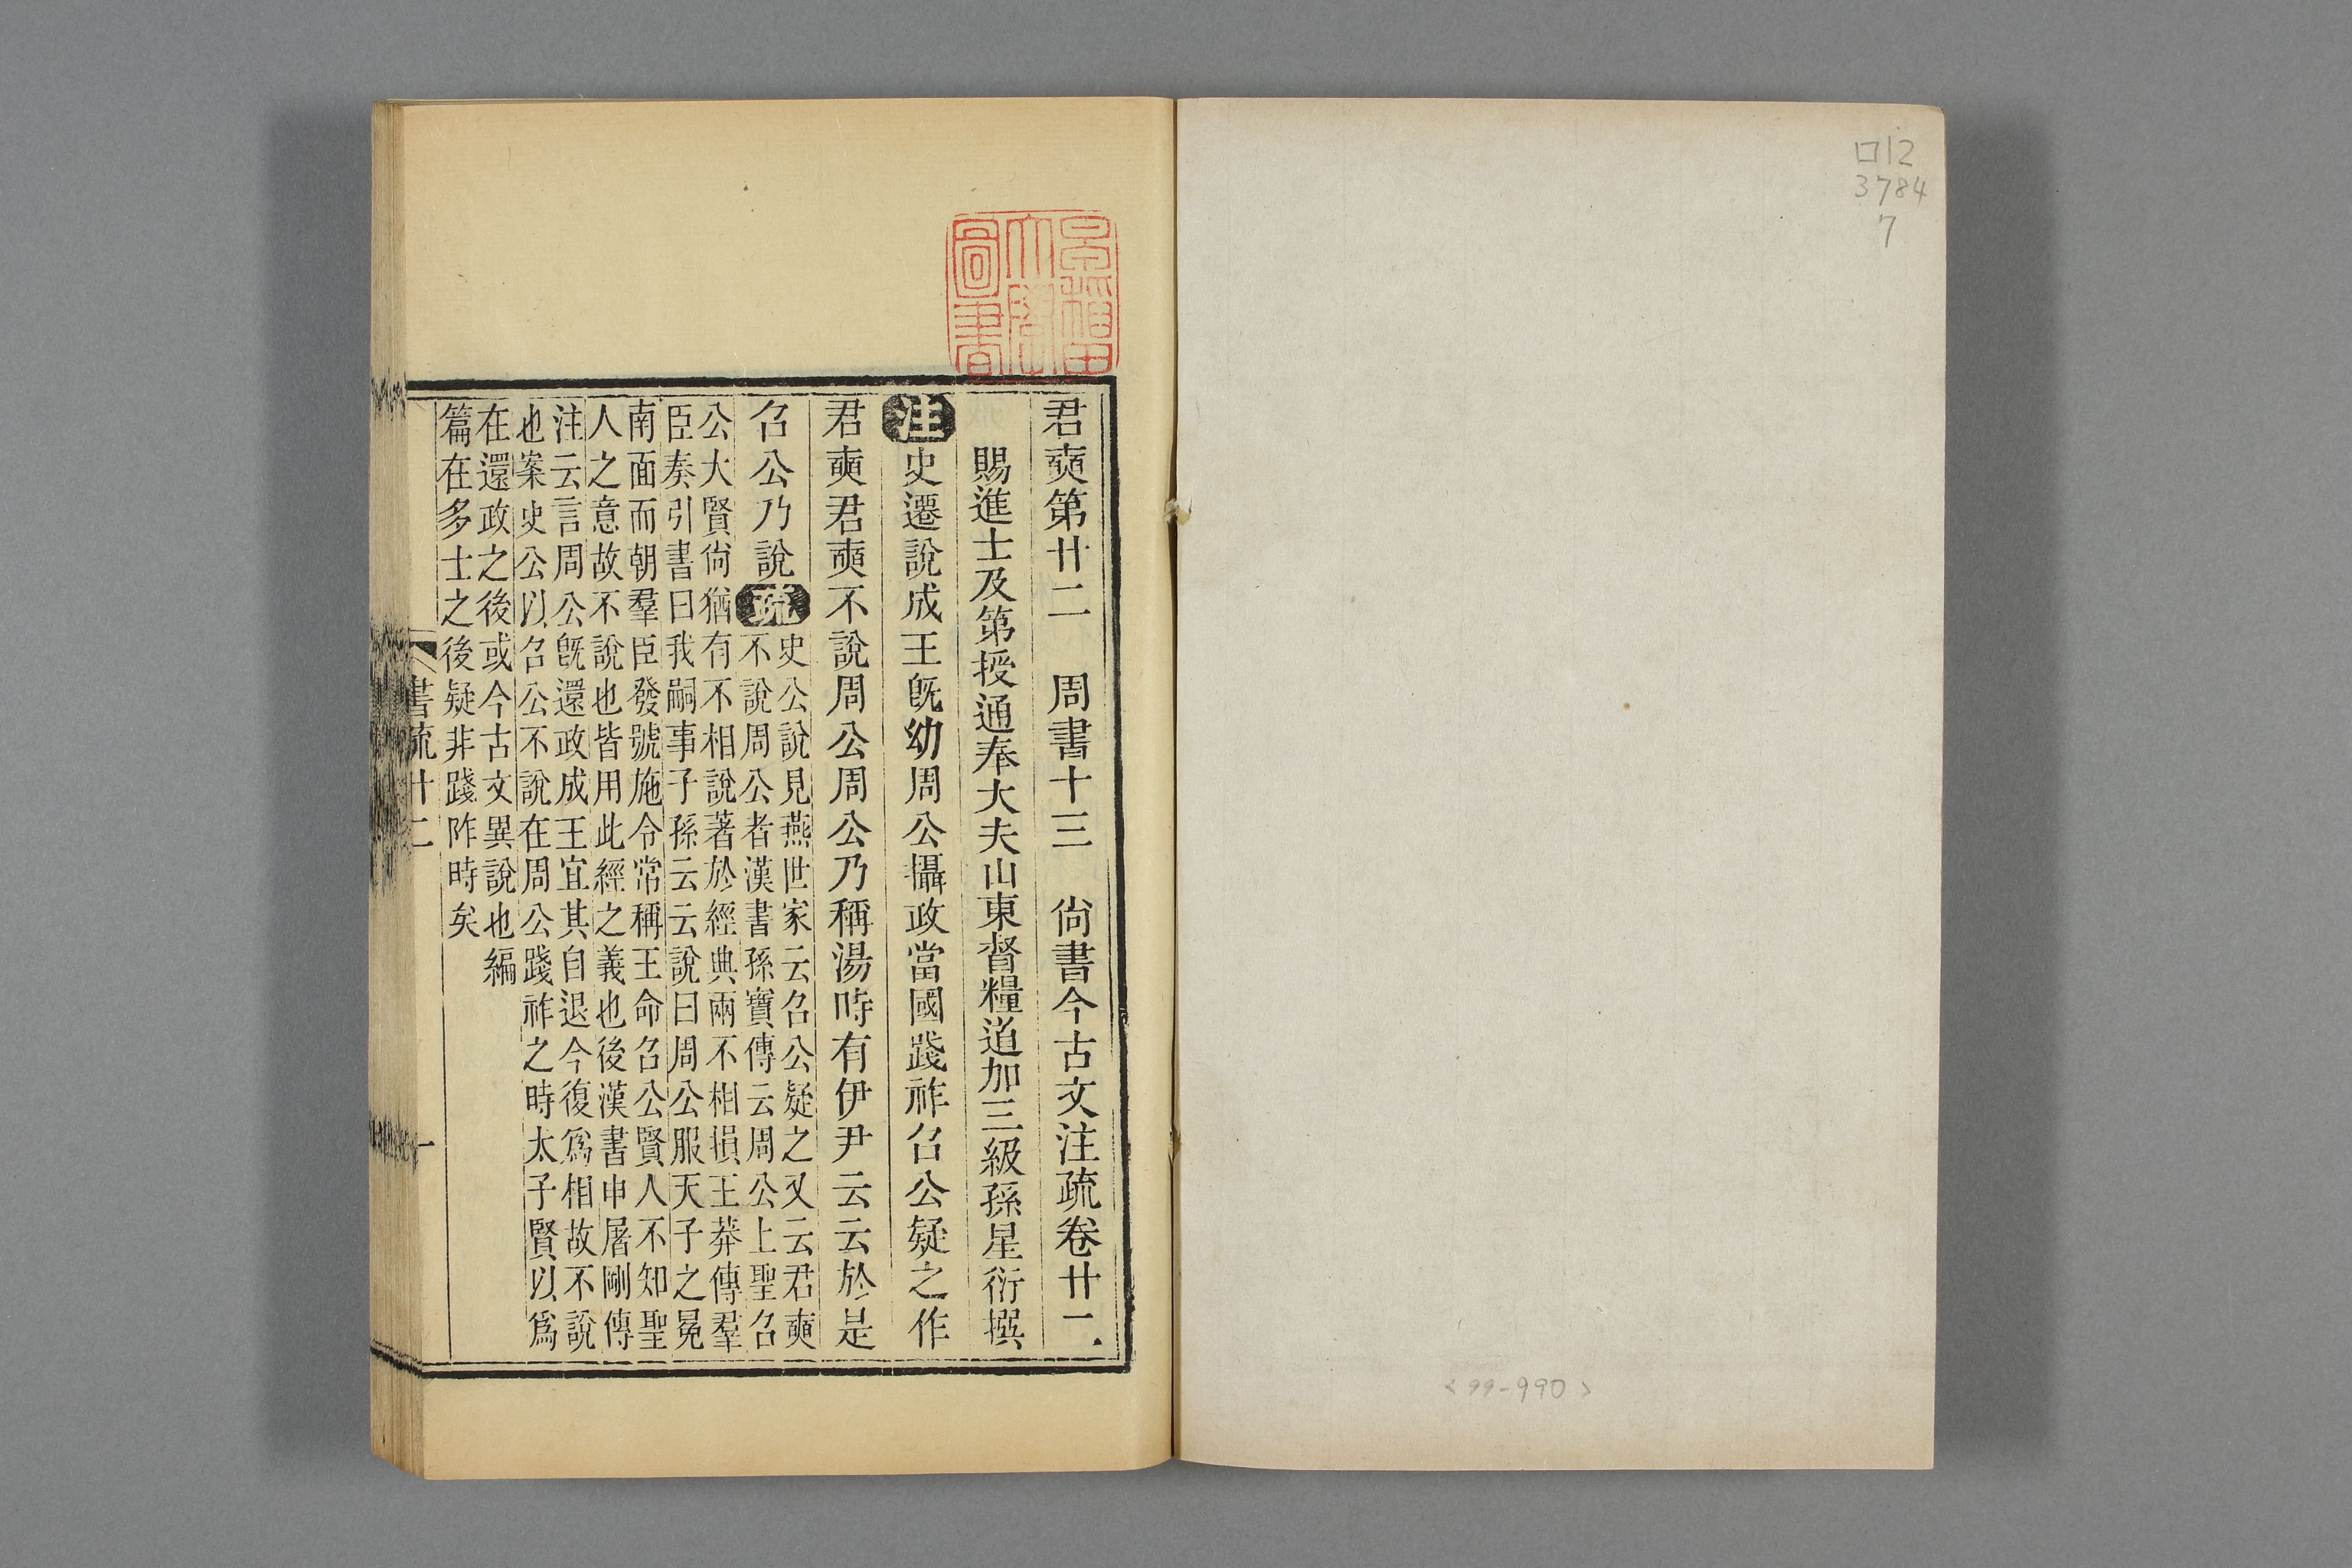 口12
3784
7
<99-990>
早稲田
大學
圖書
君奭第廿二　周書十三　尚書今古文注疏卷廿二
賜進士及第授通奉大夫山東督糧道加三級孫星衍撰
注史遷說成王旣幼周公攝政當國踐祚召公疑之作
君奭君奭不說周公周公乃稱湯時有伊尹云云於是
召公乃說疏
史公說見燕世家云召公疑之又云君奭
不說周公者漢書孫寶傳云周公上聖召
公大賢尙猶有不相說著於經典兩不相損王莽傳羣
臣奏引書曰我嗣事子孫云云說曰周公服天子之冕
南面而朝羣臣發號施令常稱王命召公賢人不知聖
人之意故不說也皆用此經之義也後漢書申屠剛傳
注云言周公旣還政成王宜其自退今復爲相故不說
也案史公以召公不說在周公踐祚之時太子賢以爲
在還政之後或今古文異說也編
篇在多士之後疑非踐阼時矣
書疏廿二
一